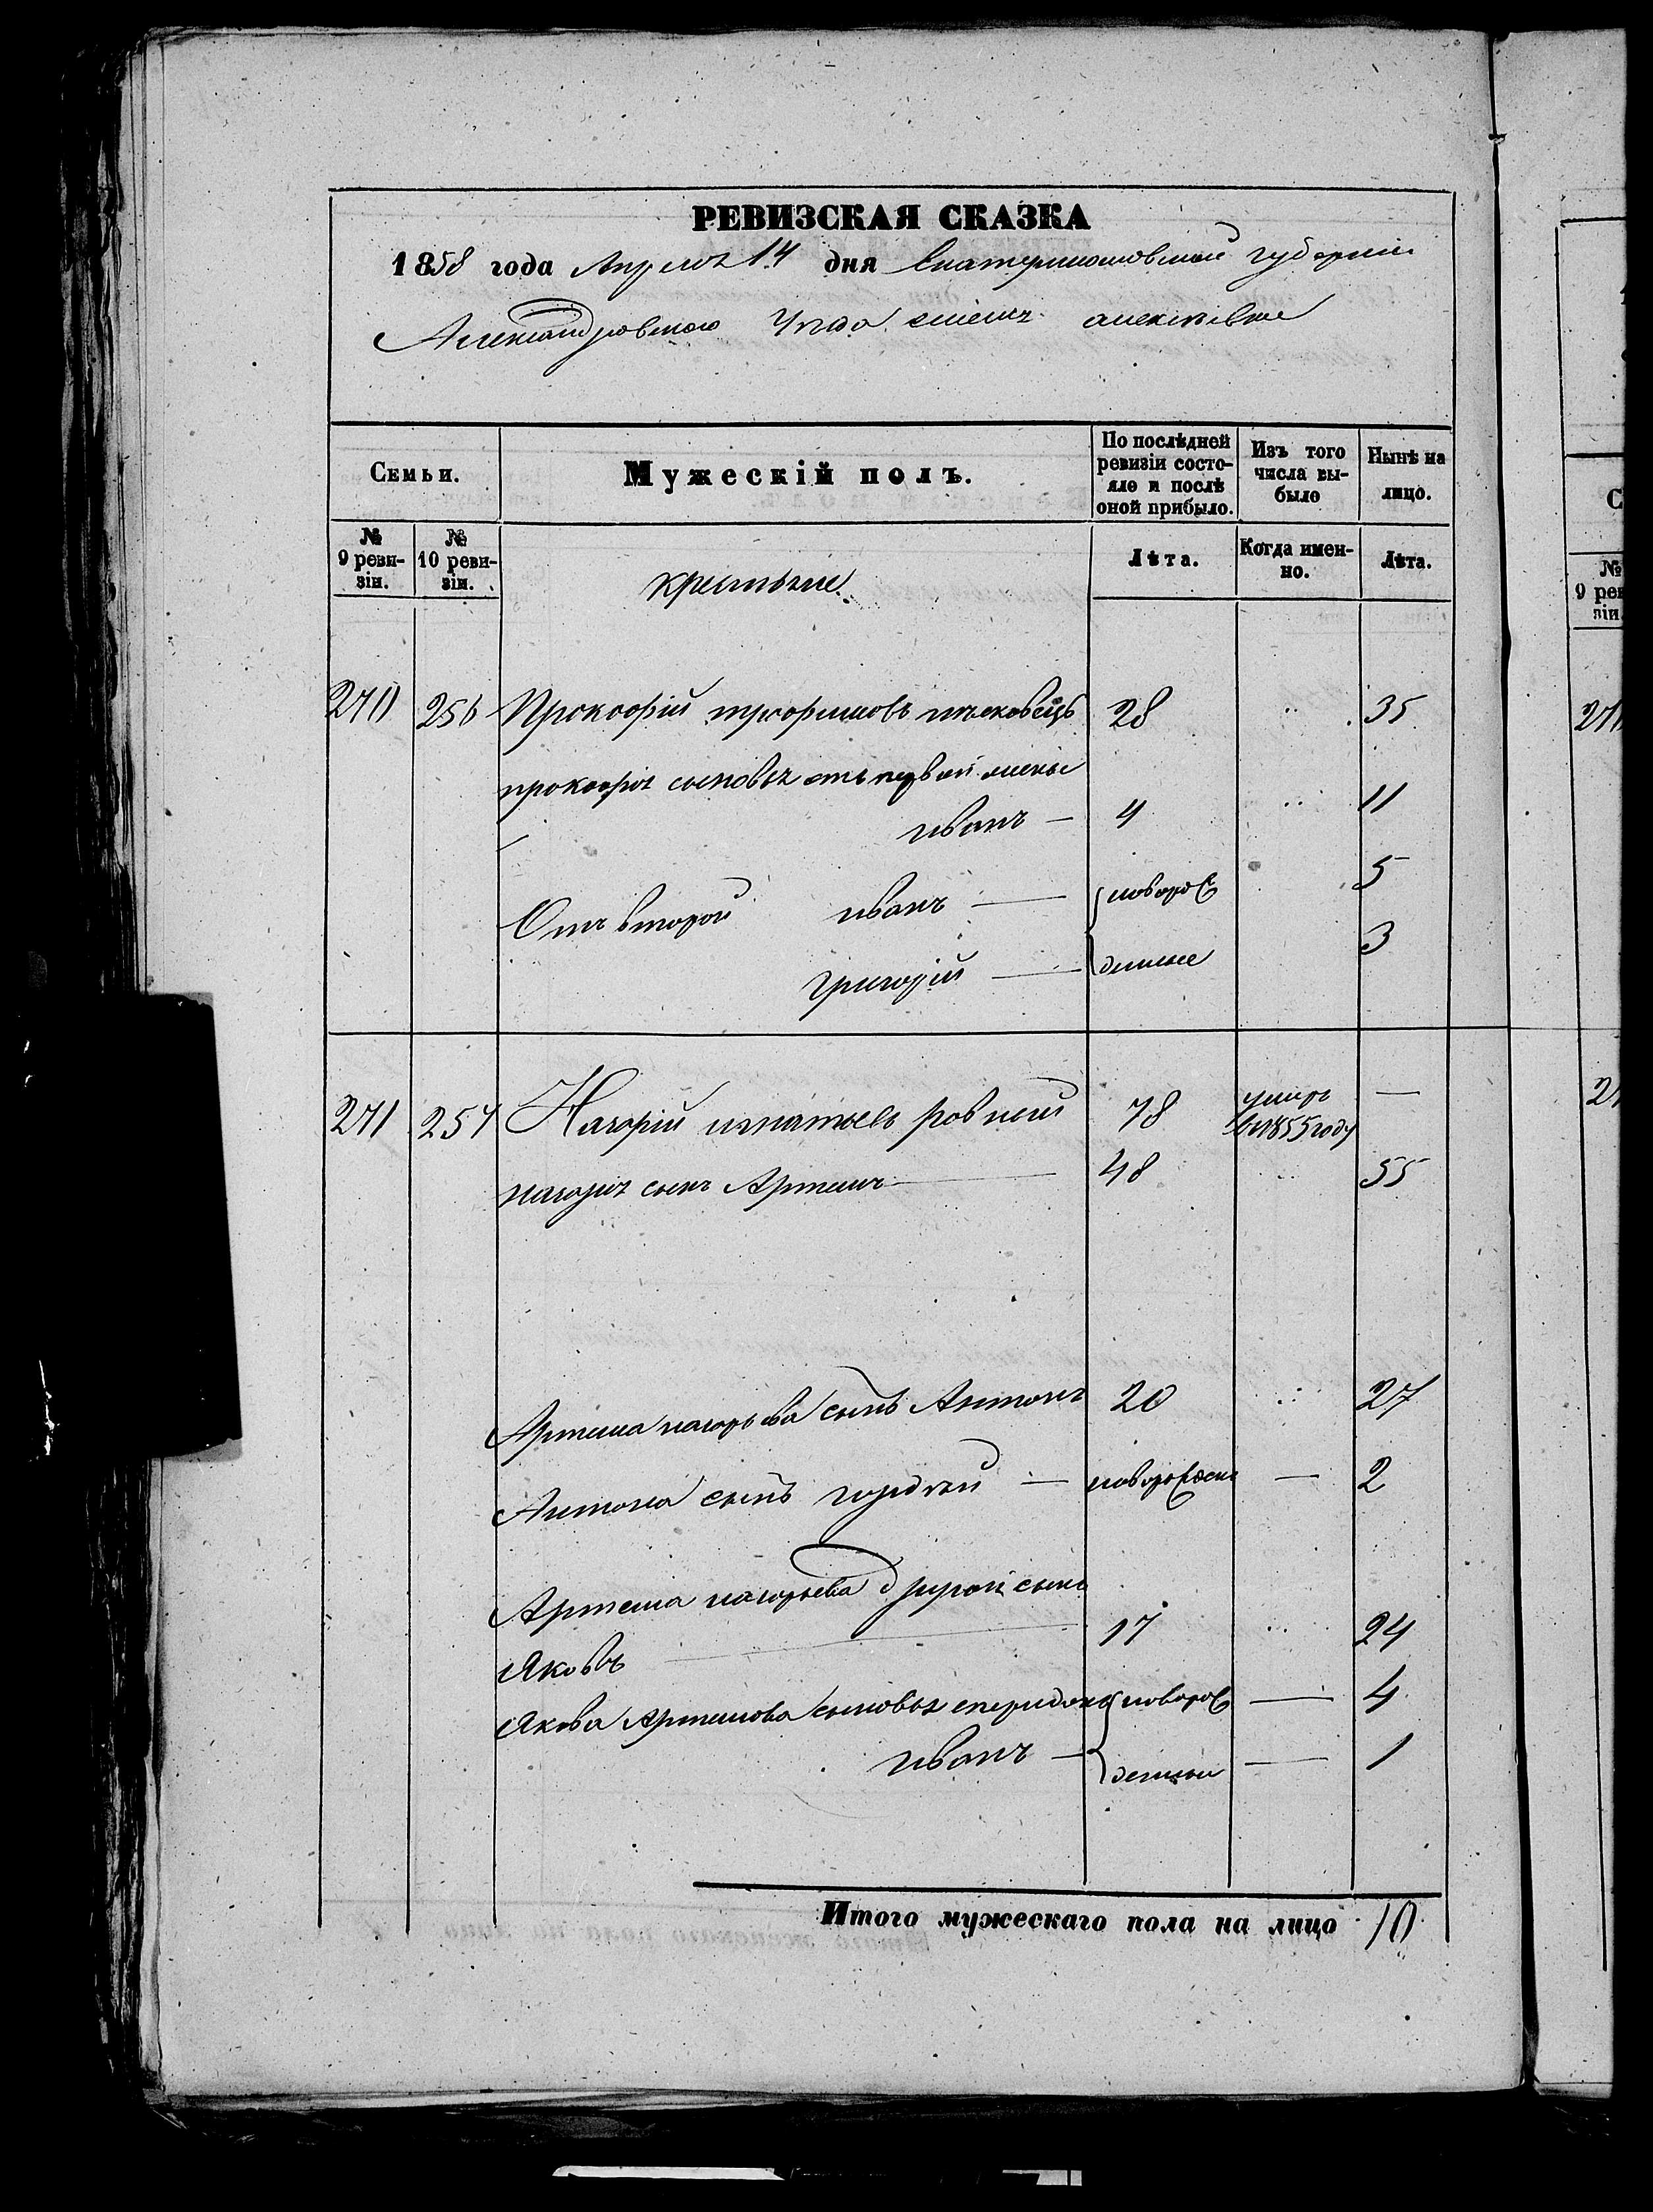 РЕВИЗСКАЯ СКАЗКА
1858 года Апреля 14 дня Екатеринославской губерніи
Александровского Уезда алексѣевки
Семьи.
Мужескій полъ.
По послѣдней ревизіи состояло и послѣ оной прибыло.
Изъ того числа выбыло
Нынѣ на лицо.
№ 9 ревизіи.
№ 10 ревизіи.
крестьяне
Лѣта.
Когда именно.
Лѣта.
270 256 Прокофій трофимовъ 28 35
прокофія сыновья отъ первой жены
иванъ — 4 11
Отъ второй иванъ — новорож 5
григорій — денные 3
271 257 игнатьевъ ровный 78 умеръ в 1855 году —
сынъ Артемъ — 48 55
Артема сынъ Антонъ 20 27
Антона сынъ гордѣй — новорожден — 2
Артема другой сынъ
Яковъ 17 24
Якова Артемова сыновья спиридонъ новорож — 4
иванъ — денный — 1
Итого мужескаго пола на лицо 10